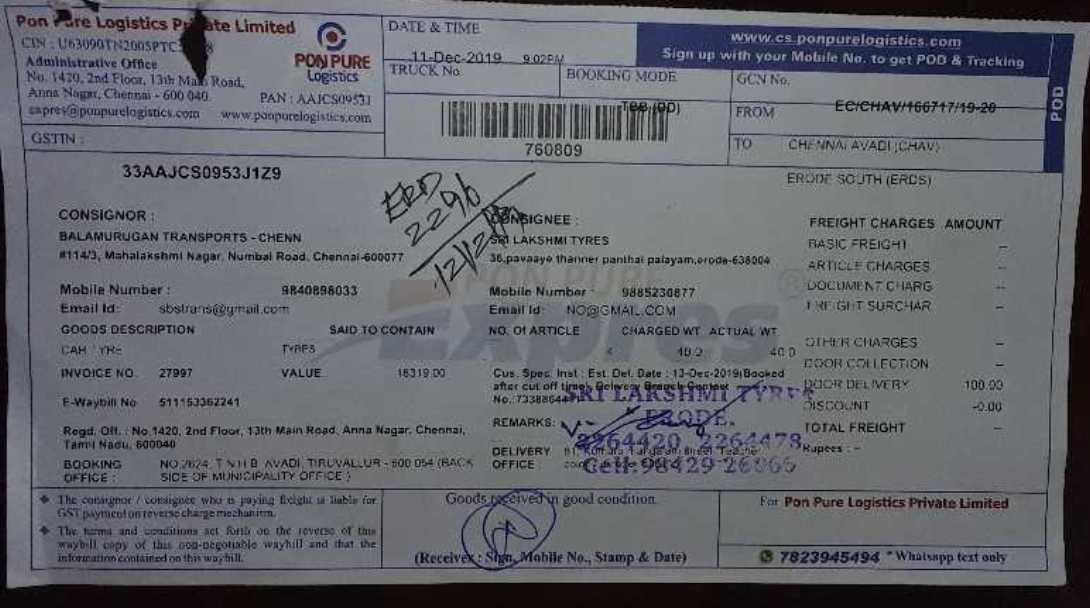 Pon Pure Logistics Private Limited
CIN : U63090TN2005PTC
Administrative Office
No. 1420, 2nd Floor, 13th Main Road,
Anna Nagar, Chennai - 600 040.
PAN : AAJCS0953J
expres@ponpurelogistics.com www.ponpurelogistics.com
PON PURE
Logistics
GSTIN :
33AAJCS0953J1Z9
DATE & TIME
11-Dec-2019 9:02PM
TRUCK No.
BOOKING MODE
760809
www.cs.ponpurelogistics.com
Sign up with your Mobile No. to get POD & Tracking
POD
GCN No.
EC/CHAV/166717/19-20
FROM
CHENNAI AVADI (CHAV)
TO
ERODE SOUTH (ERDS)
ERD
2296
12/12/19
CONSIGNOR :
BALAMURUGAN TRANSPORTS - CHENN
#114/3, Mahalakshmi Nagar, Numbal Road, Chennai-600077
Mobile Number : 9840898033
Email Id: sbstrans@gmail.com
CONSIGNEE :
SRI LAKSHMI TYRES
36,pavaaye thanner panthai palayam,erode-638004
Mobile Number 9885230877
Email Id: NO@GMAIL.COM
PON PURE
Expres
GOODS DESCRIPTION SAID TO CONTAIN
TYRES
INVOICE NO. 27997 VALUE 16319.00
E-Waybill No 511153362241
Regd. Off. : No.1420, 2nd Floor, 13th Main Road, Anna Nagar, Chennai,
Tamil Nadu, 600040
BOOKING OFFICE : NO.2624, T N H B AVADI, TIRUVALLUR - 600 054 (BACK
SIDE OF MUNICIPALITY OFFICE )
NO. Of ARTICLE CHARGED WT ACTUAL WT
40.0 40.0
Cus. Spec. Inst : Est. Del. Date : 13-Dec-2019(Booked
after cut off time). Delivery Branch Contact
REMARKS:
DELIVERY OFFICE
SRI LAKSHMI TYRES
ERODE.
2264420, 2264478
Cell: 98429 26966
FREIGHT CHARGES AMOUNT
BASIC FREIGHT --
ARTICLE CHARGES --
DOCUMENT CHARG --
FREIGHT SURCHAR --
OTHER CHARGES --
DOOR COLLECTION --
DOOR DELIVERY 100.00
DISCOUNT -0.00
TOTAL FREIGHT --
Rupees : --
The consignor / consignee who is paying freight is liable for
GST payment on reverse charge mechanism.
The terms and conditions set forth on the reverse of this
waybill copy of this non-negotiable waybill and that the
information contained on this waybill.
Goods received in good condition.
(Receiver : Sign, Mobile No., Stamp & Date)
For Pon Pure Logistics Private Limited
7823945494 *Whatsapp text only